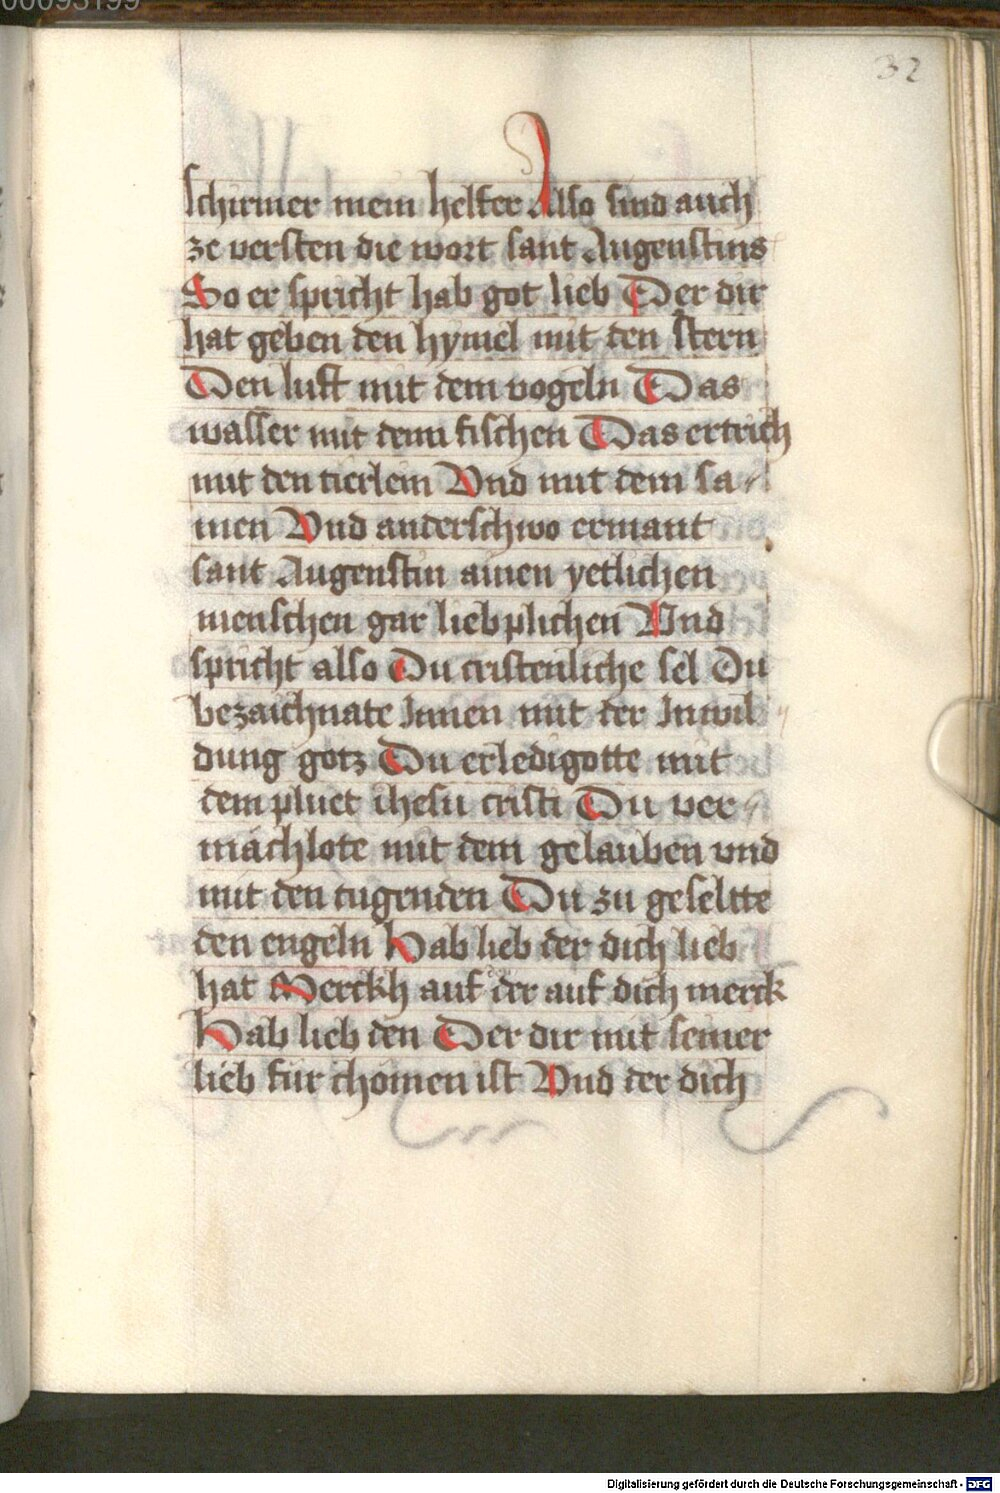 32
schirmer mein helfer Also sind auch
ze versten die wort sant Augenstins
So er spricht hab got lieb Der dir
hat geben den hymel mit den stern
Den luft mit dem vogeln Das
wasser mit dem fischen Das ertrich
mit den tierlein Vnd mit dem sa
men Vnd anderschwo ermant
sant Augenstin ainen yetlichen
menschen gar liebplichen Vnd
spricht also Du cristenliche sel Du
bezaichnate Innen mit der Inwil
dung gotz Du erledigotte mit
dem pluet ihesu cristi Du ver
mächlote mit dem gelauben vnd
mit den tugenden Du zu geseltte
den engeln Hab lieb der dich lieb
hat Merckh auf der auf dich merck
Hab lieb den Der dir mit seiner
lieb für chomen ist Vnd der dich
Digitalisierung gefördert durch die Deutsche Forschungsgemeinschaft - DFG